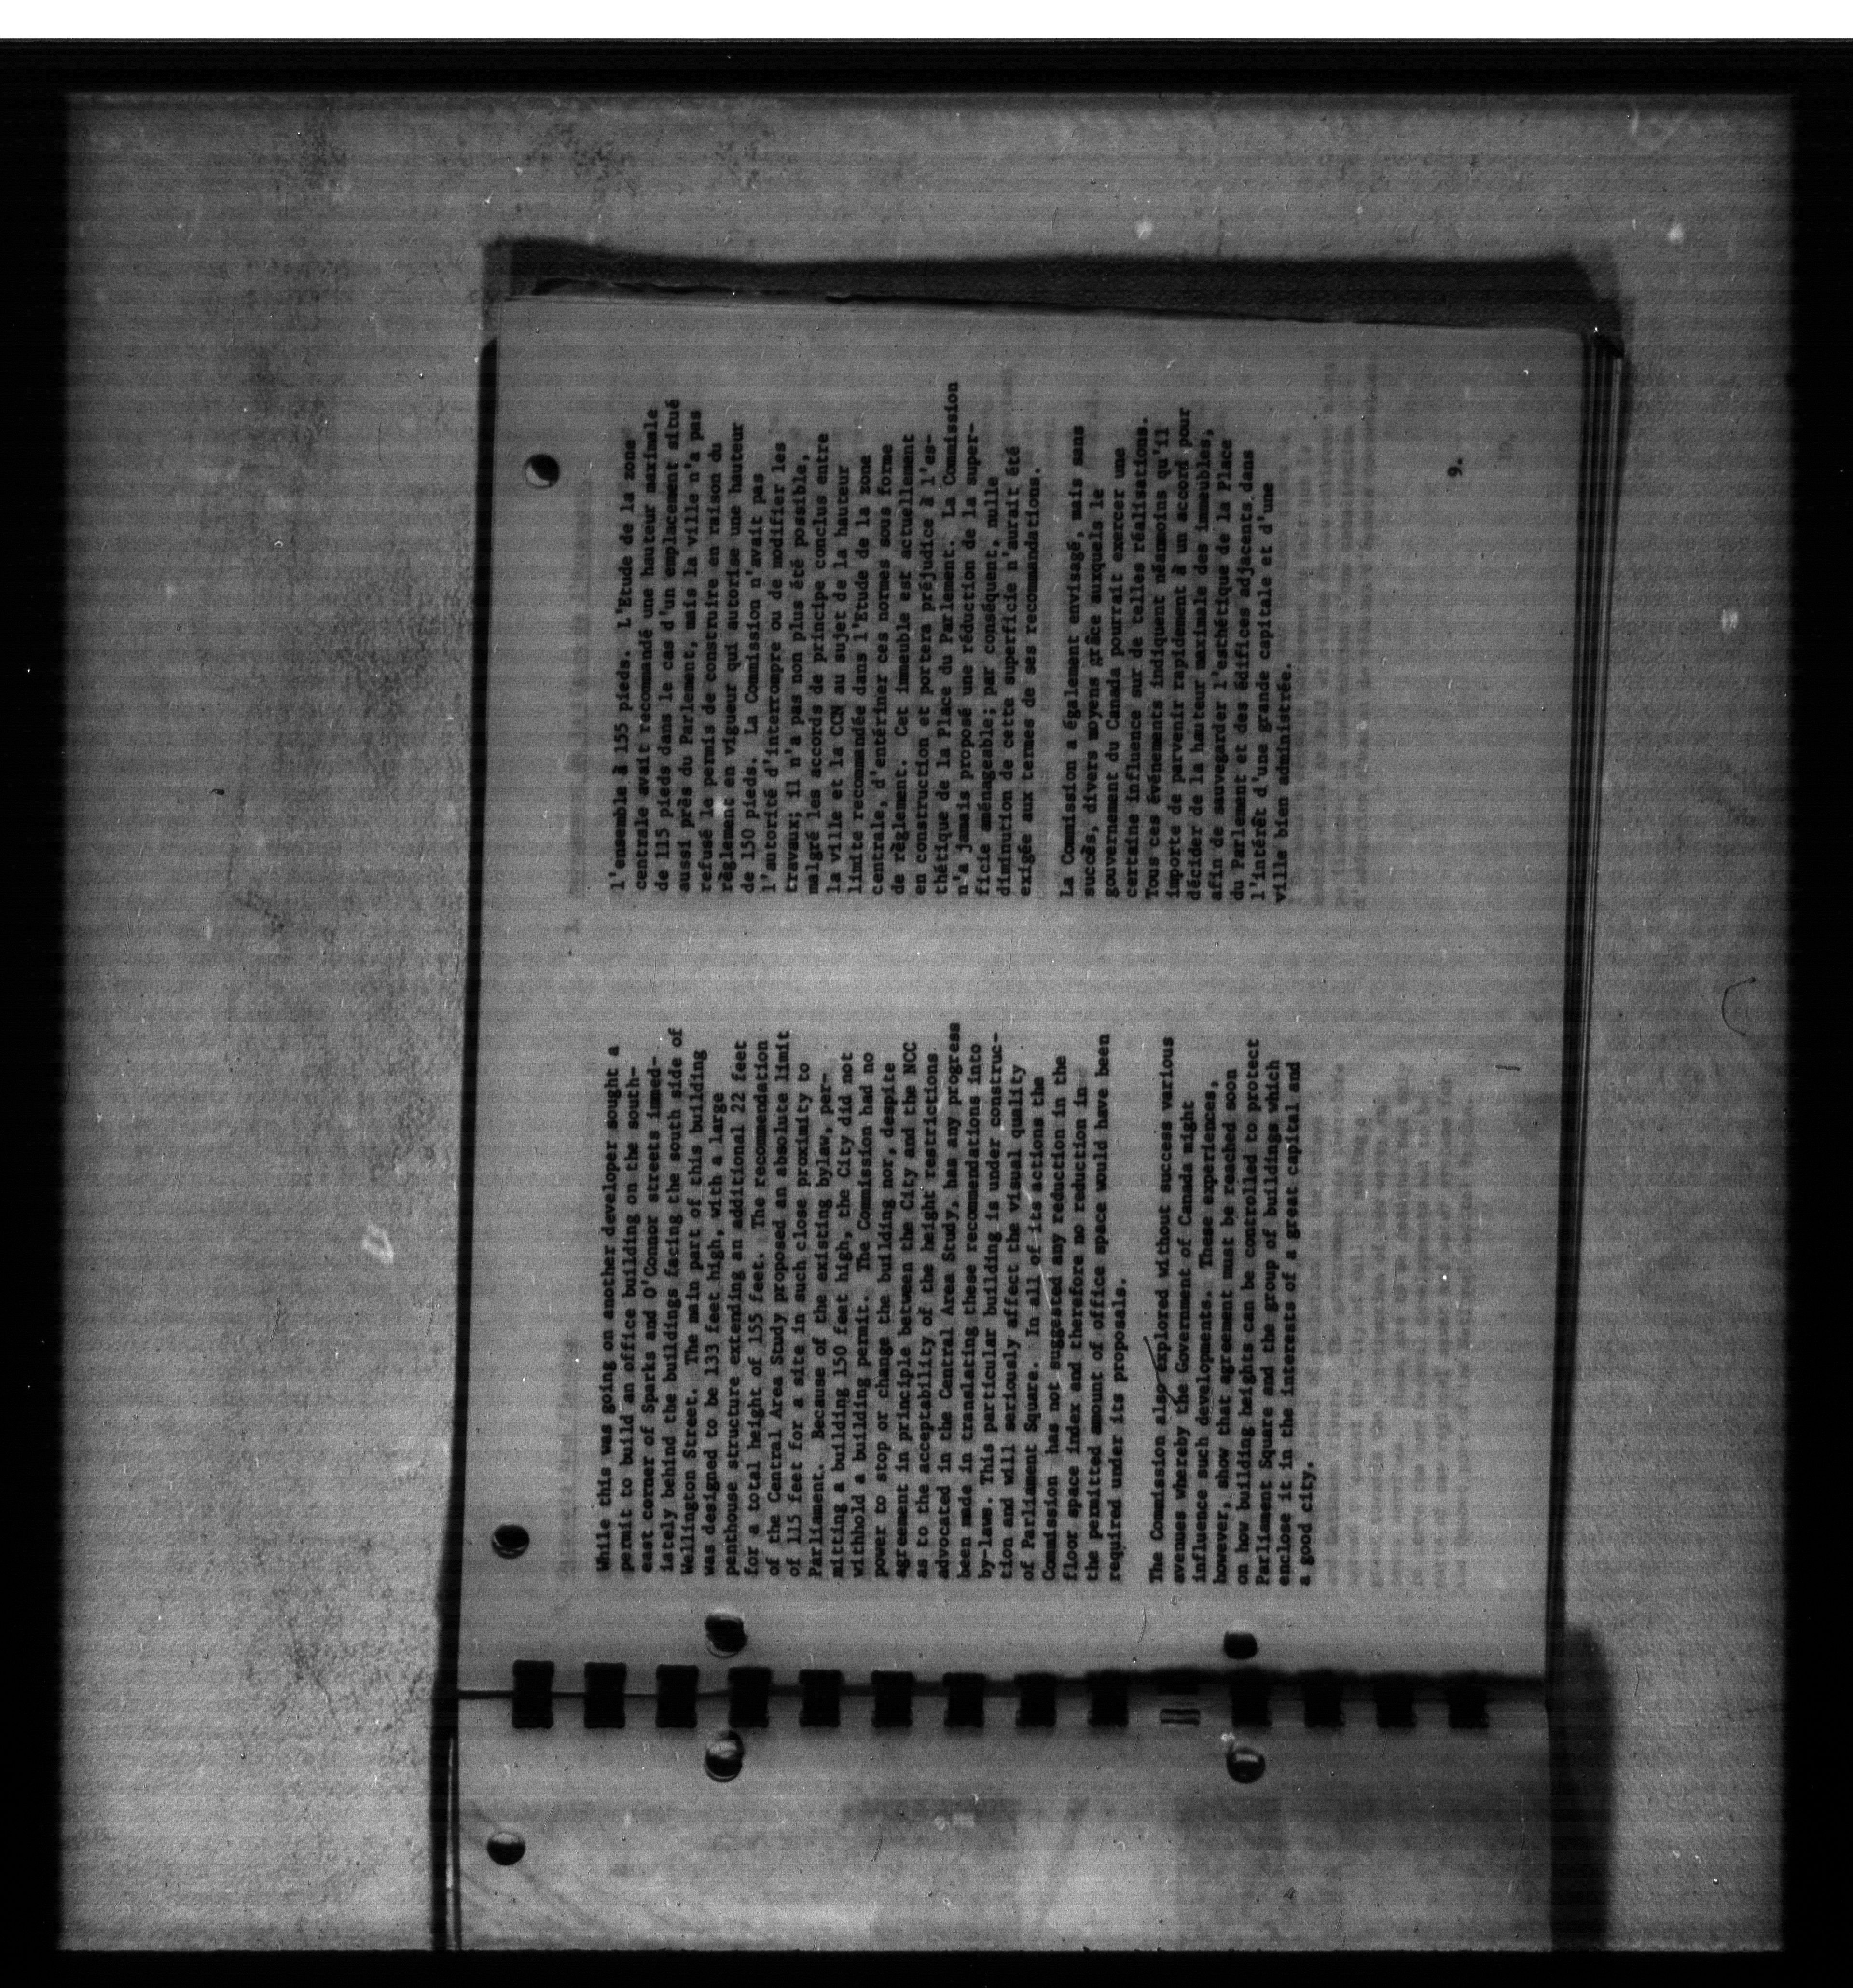 While this was going on another developer sought a
permit to build an office building on the south-
east corner of Sparks and O'Connor streets immed-
iately behind the buildings facing the south side of
Wellington Street. The main part of this building
was designed to be 133 feet high, with a large
penthouse structure extending an additional 22 feet
for a total height of 155 feet. The recommendation
of the Central Area Study proposed an absolute limit
of 115 feet for a site in such close proximity to
Parliament. Because of the existing bylaw, per-
mitting a building 150 feet high, the City did not
withhold a building permit. The Commission had no
power to stop or change the building nor, despite
agreement in principle between the City and the NCC
as to the acceptability of the height restrictions
advocated in the Central Area Study, has any progress
been made in translating these recommendations into
by-laws. This particular building is under construc-
tion and will seriously affect the visual quality
of Parliament Square. In all of its actions the
Commission has not suggested any reduction in the
floor space index and therefore no reduction in
the permitted amount of office space would have been
required under its proposals.
The Commission also explored without success various
avenues whereby the Government of Canada might
influence such developments. These experiences,
however, show that agreement must be reached soon
on how building heights can be controlled to protect
Parliament Square and the group of buildings which
enclose it in the interests of a great capital and
a good city.
l'ensemble à 155 pieds. L'Etude de la zone
centrale avait recommandé une hauteur maximale
de 115 pieds dans le cas d'un emplacement situé
aussi près du Parlement, mais la ville n'a pas
refusé le permis de construire en raison du
règlement en vigueur qui autorise une hauteur
de 150 pieds. La Commission n'avait pas
l'autorité d'interrompre ou de modifier les
travaux; il n'a pas non plus été possible,
malgré les accords de principe conclus entre
la ville et la CCN au sujet de la hauteur
limite recommandée dans l'Etude de la zone
centrale, d'entériner ces normes sous forme
de règlement. Cet immeuble est actuellement
en construction et portera préjudice à l'es-
thétique de la Place du Parlement. La Commission
n'a jamais proposé une réduction de la super-
ficie aménageable; par conséquent, nulle
diminution de cette superficie n'aurait été
exigée aux termes de ses recommandations.
La Commission a également envisagé, mais sans
succès, divers moyens grâce auxquels le
gouvernement du Canada pourrait exercer une
certaine influence sur de telles réalisations.
Tous ces événements indiquent néanmoins qu'il
importe de parvenir rapidement à un accord pour
décider de la hauteur maximale des immeubles,
afin de sauvegarder l'esthétique de la Place
du Parlement et des édifices adjacents dans
l'intérêt d'une grande capitale et d'une
ville bien administrée.
9.